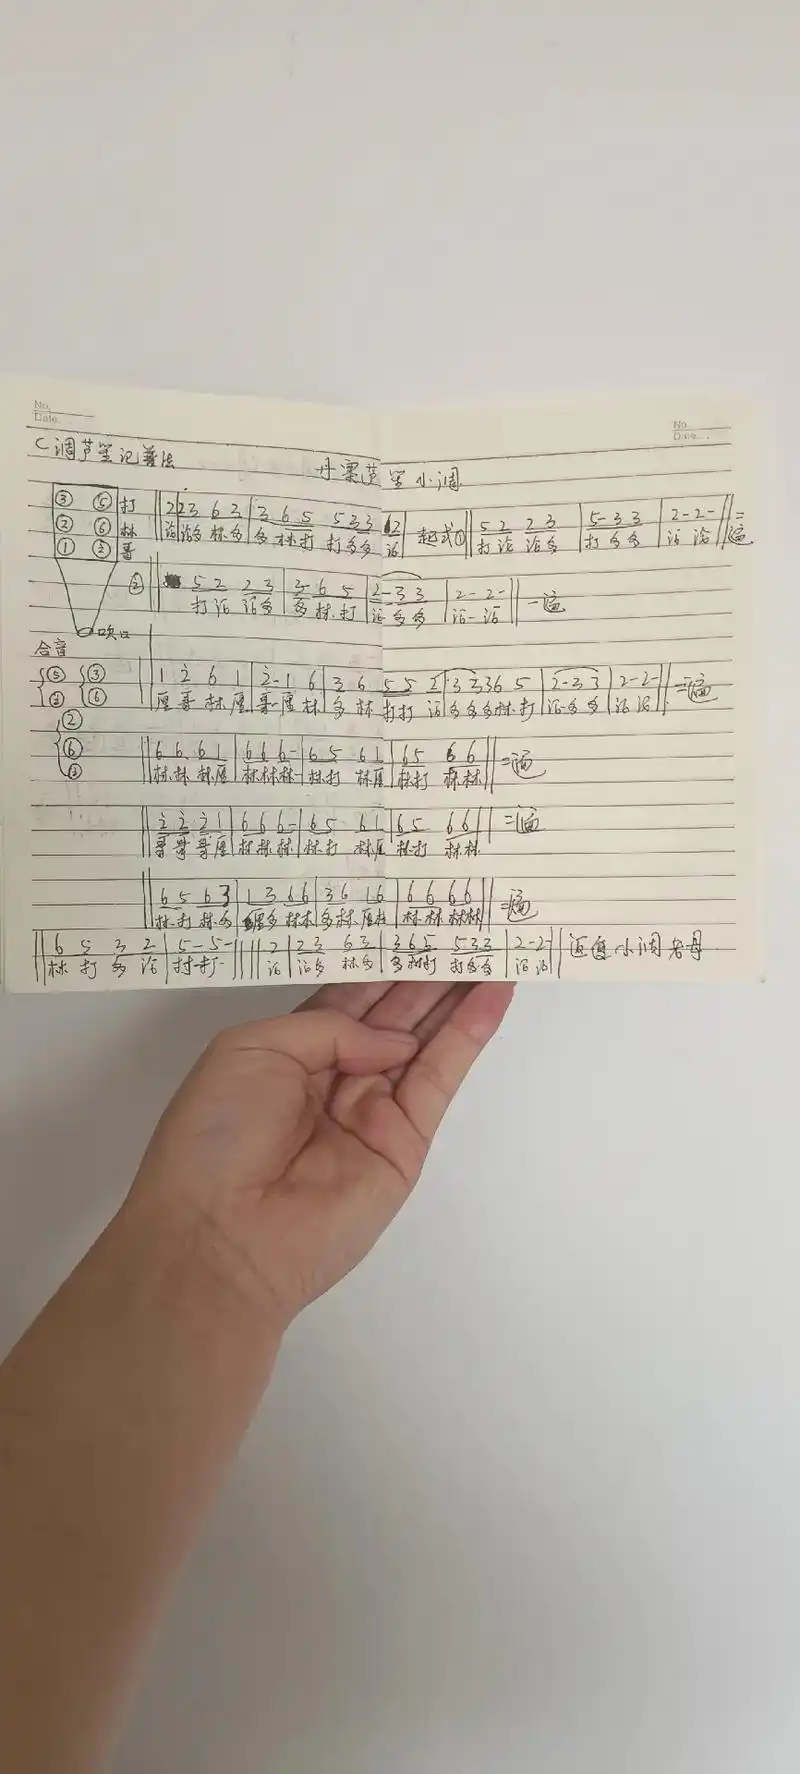 No.
Date.
No.
Date.
C调芦笙记普法
丹寨芦笙小调
③ ⑤ 打
② ⑥ 林
① 哥
吹口
合音
2 | 2 3 6 3 | 3 6 5 5 3 3 起式① || 5 2 2 3 | 5-3 3 | 2-2- || 二遍
多 林 多 多 林 打 打 多 多 打 多 打 多 多
② 5 2 2 3 | 3 6 5 | 2-3 3 | 2-2- || 一遍
打 多 多 林 打 多 多
1 2̇ 6 1 | 2̇-1 6 | 3 6 5 5 2 | 3 3 3 6 5 | 2-3 3 | 2-2- || 二遍
厘 哥 林 厘 哥-厘 林 多 林 打 打 多 多 多 林 打 多 多
|| 6 6 6 1 | 6 6 6- | 6 5 6 1 | 6 5 6 6 || 二遍
林 林 林 厘 林 林 林- 林 打 林 厘 林 打 林 林
|| 2̇ 2̇ 2̇ 1 | 6 6 6- | 6 5 6 1 | 6 5 6 6 || 二遍
哥 哥 哥 厘 林 林 林 林 打 林 厘 林 打 林 林
|| 6 5 6 3 | 1 3 6 6 | 3 6 1 6 | 6 6 6 6 || 二遍
林 打 林 多 厘 多 林 林 多 林 厘 林 林 林 林 林
|| 6 5 3 2 | 5-5- || 2 | 2 3 6 3 | 3 6 5 5 3 3 | 2-2- || 小调
林 打 多 打-打- 多 林 多 多 林 打 打 多 多